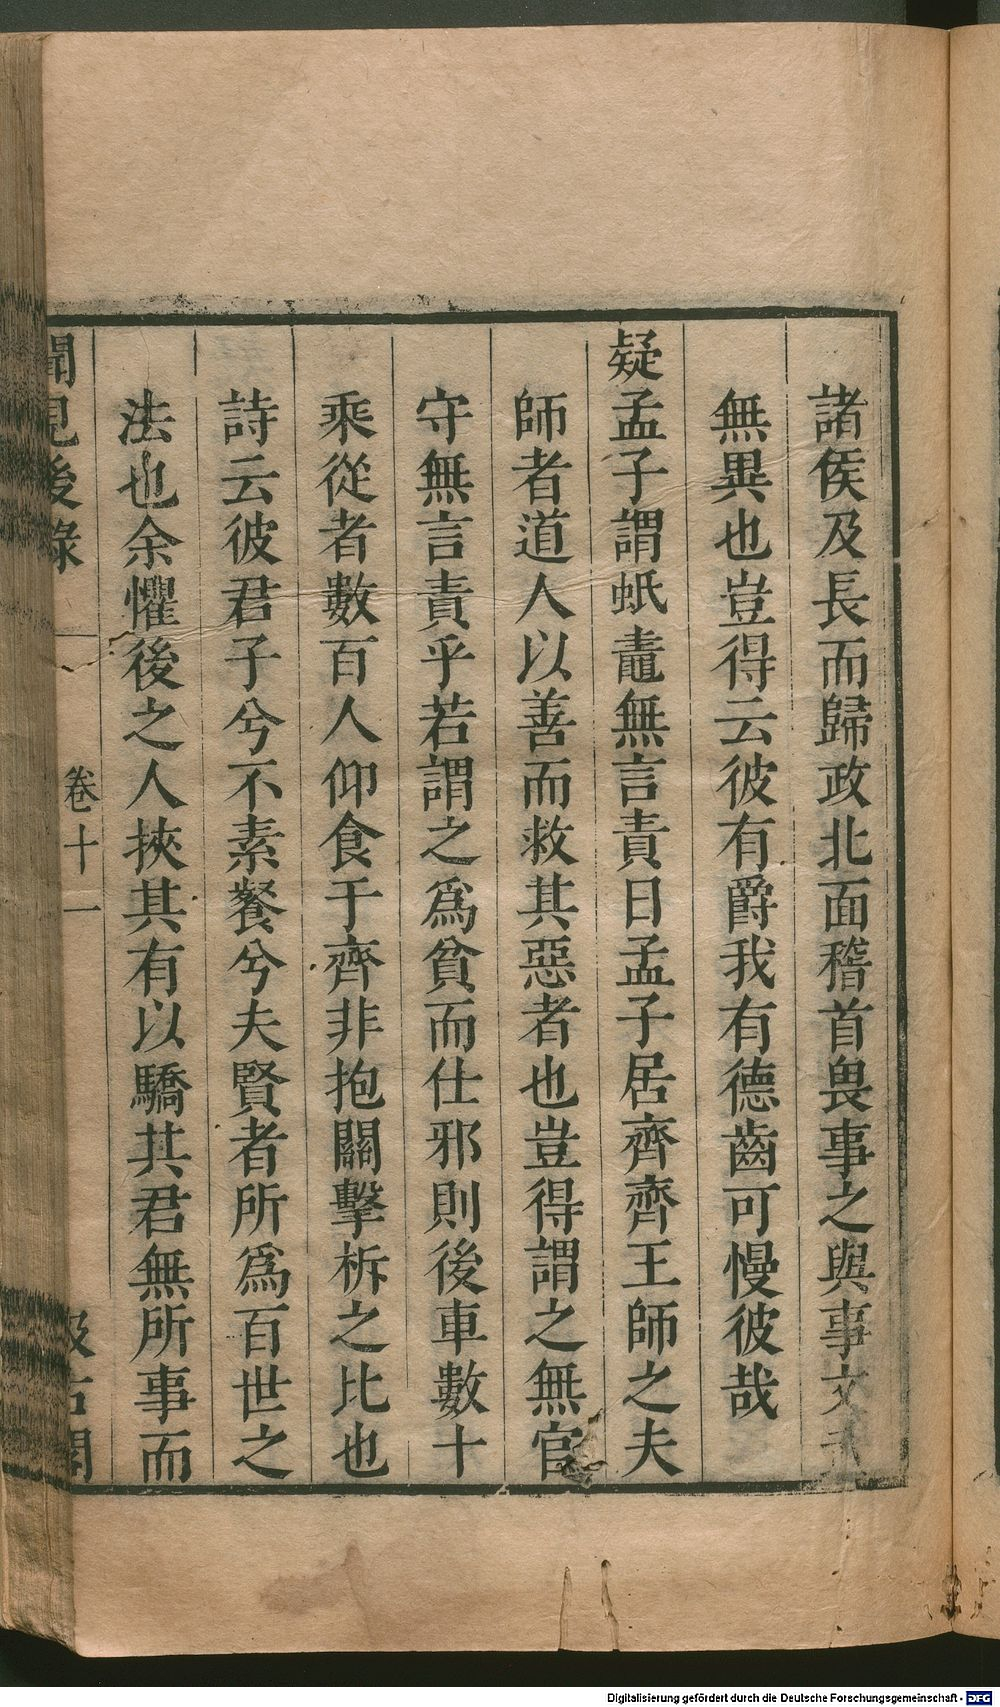 諸侯及長而歸政北面稽首畏事之與事文武
無異也豈得云彼有爵我有德齒可慢彼哉
疑孟子謂蚳鼃無言責曰孟子居齊齊王師之夫
師者道人以善而救其惡者也豈得謂之無官
守無言責乎若謂之爲貧而仕邪則後車數十
乘從者數百人仰食于齊非抱關擊柝之比也
詩云彼君子兮不素餐兮夫賢者所爲百世之
法也余懼後之人挾其有以驕其君無所事而
聞見後錄 卷十一 汲古閣
Digitalisierung gefördert durch die Deutsche Forschungsgemeinschaft - DFG